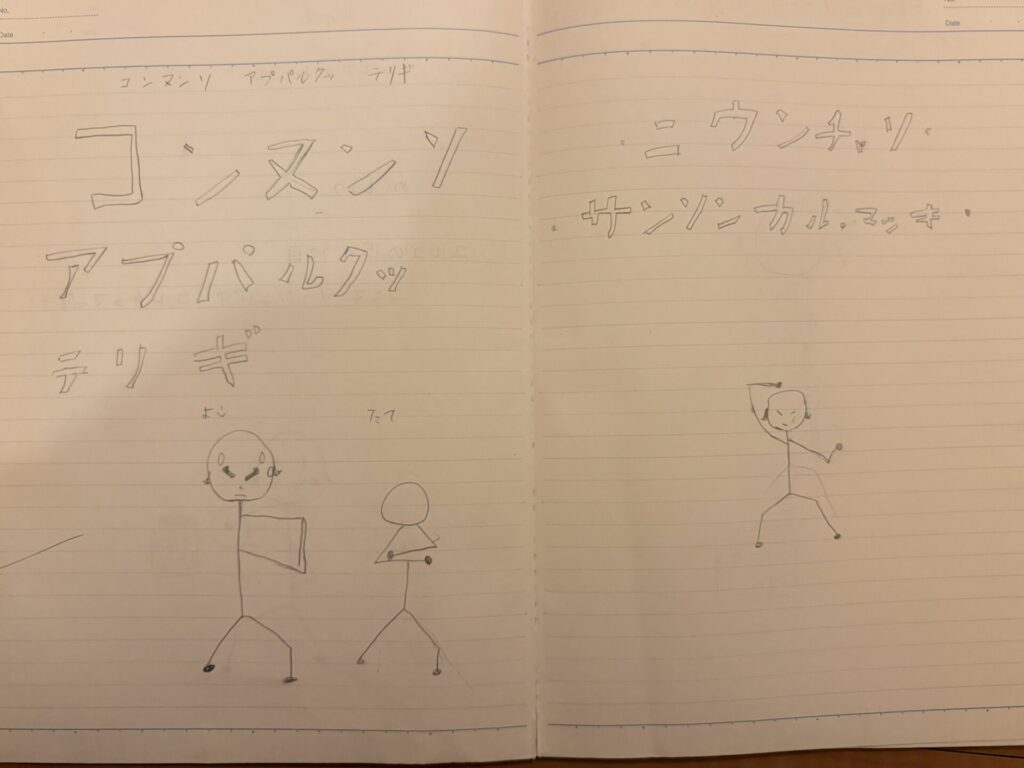 No.
Date
コンヌンソ アプパルクッ テリギ
コンヌンソ
アプパルクッ
テリギ
よこ
ナナメ
No.
Date
・ニウンチャソ・
・サンソンカルマッキ・